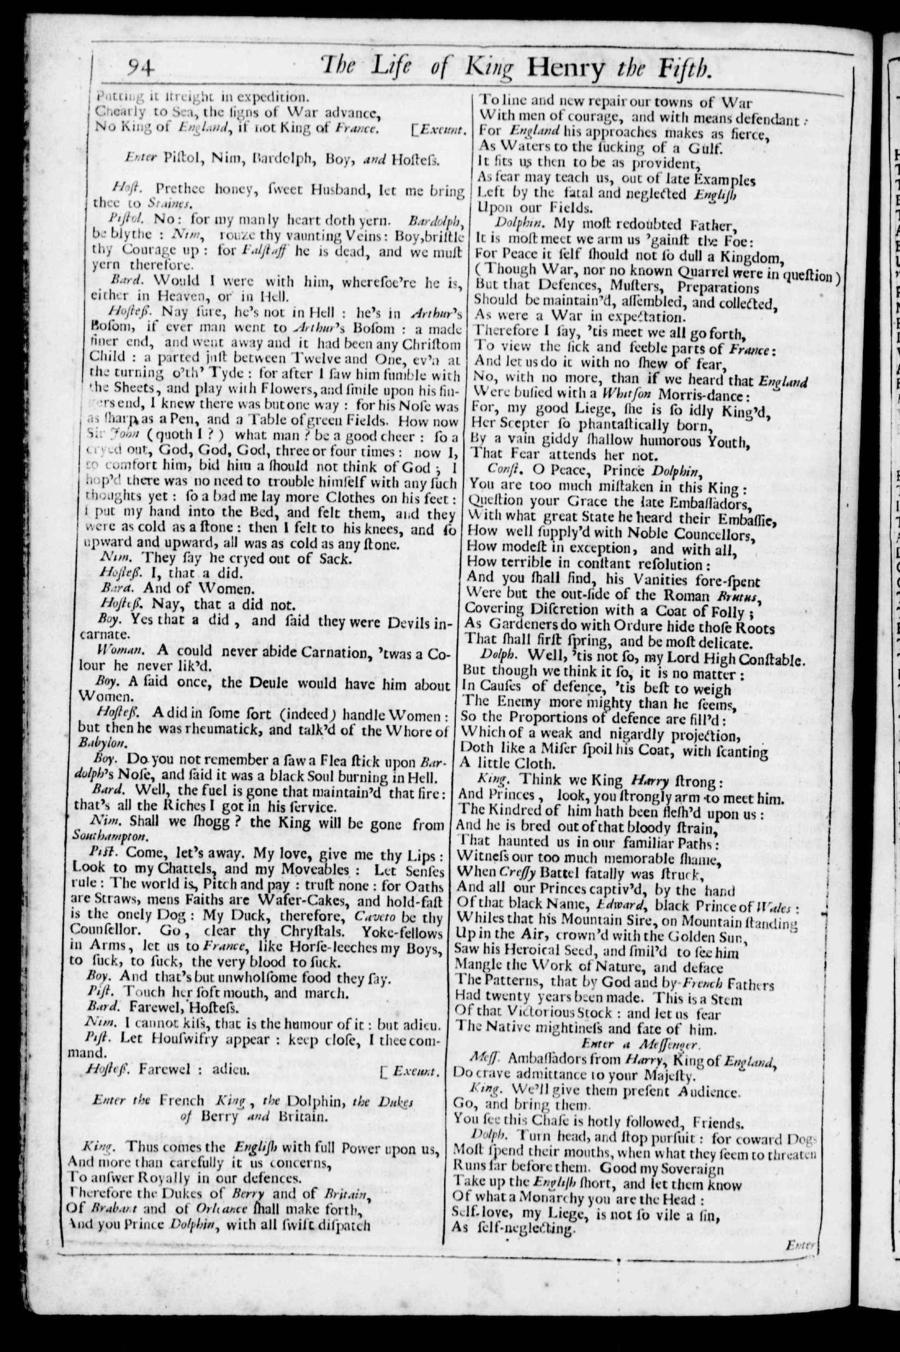 94
The Life of King Henry the Fifth.
Putting it streight in expedition.
Chearly to Sea, the signs of War advance,
No King of England, if not King of France. [Exeunt.
Enter Pistol, Nim, Bardolph, Boy, and Hostess.
Host. Prethee honey, sweet Husband, let me bring
thee to Staines.
Pistol. No: for my manly heart doth yern. Bardolph,
be blythe: Nim, rouze thy vaunting Veins: Boy, bristle
thy Courage up: for Falstaff he is dead, and we must
yern therefore.
Bard. Would I were with him, wheresoe're he is,
either in Heaven, or in Hell.
Hostess. Nay sure, he's not in Hell: he's in Arthur's
Bosom, if ever man went to Arthur's Bosom: a made
finer end, and went away and it had been any Christom
Child: a parted just between Twelve and One, ev'n at
the turning o'th' Tyde: for after I saw him fumble with
the Sheets, and play with Flowers, and smile upon his fin-
gers end, I knew there was but one way: for his Nose was
as sharp as a Pen, and a Table of green Fields. How now
Sir John (quoth I?) what man? be a good cheer: so a
cryed out, God, God, God, three or four times: now I,
to comfort him, bid him a should not think of God; I
hop'd there was no need to trouble himself with any such
thoughts yet: so a bad me lay more Clothes on his feet:
I put my hand into the Bed, and felt them, and they
were as cold as a stone: then I felt to his knees, and so
upward and upward, all was as cold as any stone.
Nim. They say he cryed out of Sack.
Hostess. I, that a did.
Bard. And of Women.
Hostess. Nay, that a did not.
Boy. Yes that a did, and said they were Devils in-
carnate.
Woman. A could never abide Carnation, 'twas a Co-
lour he never lik'd.
Boy. A said once, the Deule would have him about
Women.
Hostess. A did in some sort (indeed) handle Women:
but then he was rheumatick, and talk'd of the Whore of
Babylon.
Boy. Do you not remember a saw a Flea stick upon Bar-
dolph's Nose, and said it was a black Soul burning in Hell.
Bard. Well, the fuel is gone that maintain'd that fire:
that's all the Riches I got in his service.
Nim. Shall we shogg? the King will be gone from
Southampton.
Pist. Come, let's away. My love, give me thy Lips:
Look to my Chattels, and my Moveables: Let Senses
rule: The world is, Pitch and pay: trust none: for Oaths
are Straws, mens Faiths are Wafer-Cakes, and hold-fast
is the onely Dog: My Duck, therefore, Caveto be thy
Counsellor. Go, clear thy Chrystals. Yoke-fellows
in Arms, let us to France, like Horse-leeches my Boys,
to suck, to suck, the very blood to suck.
Boy. And that's but unwholsome food they say.
Pist. Touch her soft mouth, and march.
Bard. Farewel, Hostess.
Nim. I cannot kiss, that is the humour of it: but adieu.
Pist. Let Houswifry appear: keep close, I thee com-
mand.
Hostess. Farewel: adieu. [Exeunt.
Enter the French King, the Dolphin, the Dukes
of Berry and Britain.
King. Thus comes the English with full Power upon us,
And more than carefully it us concerns,
To answer Royally in our defences.
Therefore the Dukes of Berry and of Britain,
Of Brabant and of Orleance shall make forth,
And you Prince Dolphin, with all swift dispatch
To line and new repair our towns of War
With men of courage, and with means defendant:
For England his approaches makes as fierce,
As Waters to the sucking of a Gulf.
It fits us then to be as provident,
As fear may teach us, out of late Examples
Left by the fatal and neglected English
Upon our Fields.
Dolphin. My most redoubted Father,
It is most meet we arm us 'gainst the Foe:
For Peace it self should not so dull a Kingdom,
(Though War, nor no known Quarrel were in question)
But that Defences, Musters, Preparations
Should be maintain'd, assembled, and collected,
As were a War in expectation.
Therefore I say, 'tis meet we all go forth,
To view the sick and feeble parts of France:
And let us do it with no shew of fear,
No, with no more, than if we heard that England
Were busied with a Whitson Morris-dance:
For, my good Liege, she is so idly King'd,
Her Scepter so phantastically born,
By a vain giddy shallow humorous Youth,
That Fear attends her not.
Const. O Peace, Prince Dolphin,
You are too much mistaken in this King:
Question your Grace the late Embassadors,
With what great State he heard their Embassie,
How well supply'd with Noble Councellors,
How modest in exception, and with all,
How terrible in constant resolution:
And you shall find, his Vanities fore-spent
Were but the out-side of the Roman Brutus,
Covering Discretion with a Coat of Folly;
As Gardeners do with Ordure hide those Roots
That shall first spring, and be most delicate.
Dolph. Well, 'tis not so, my Lord High Constable.
But though we think it so, it is no matter:
In Causes of defence, 'tis best to weigh
The Enemy more mighty than he seems,
So the Proportions of defence are fill'd:
Which of a weak and nigardly projection,
Doth like a Miser spoil his Coat, with scanting
A little Cloth.
King. Think we King Harry strong:
And Princes, look, you strongly arm to meet him.
The Kindred of him hath been flesh'd upon us:
And he is bred out of that bloody strain,
That haunted us in our familiar Paths:
Witness our too much memorable shame,
When Cressy Battel fatally was struck,
And all our Princes captiv'd, by the hand
Of that black Name, Edward, black Prince of Wales:
Whiles that his Mountain Sire, on Mountain standing
Up in the Air, crown'd with the Golden Sun,
Saw his Heroical Seed, and smil'd to see him
Mangle the Work of Nature, and deface
The Patterns, that by God and by French Fathers
Had twenty years been made. This is a Stem
Of that Victorious Stock: and let us fear
The Native mightiness and fate of him.
Enter a Messenger.
Mess. Ambassadors from Harry, King of England,
Do crave admittance to your Majesty.
King. We'll give them present Audience.
Go, and bring them.
You see this Chase is hotly followed, Friends.
Dolph. Turn head, and stop pursuit: for coward Dogs
Most spend their mouths, when what they seem to threaten
Runs far before them. Good my Soveraign
Take up the English short, and let them know
Of what a Monarchy you are the Head:
Self-love, my Liege, is not so vile a sin,
As self-neglecting.
Enter